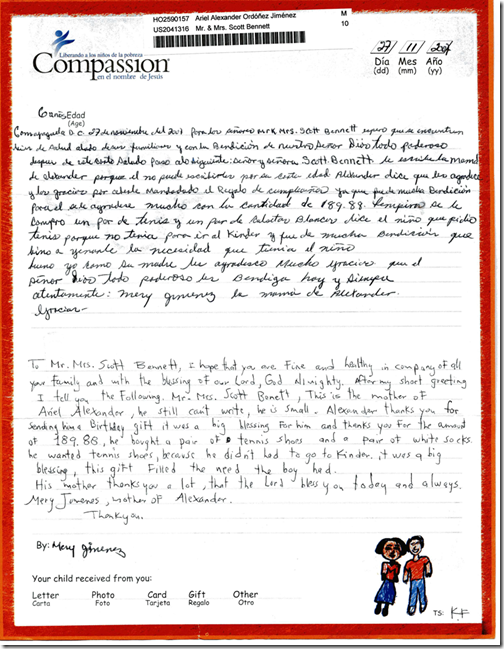 HO2590157 Ariel Alexander Ordóñez Jiménez M
US2041316 Mr. & Mrs. Scott Bennett 10
Liberando a los niños de la pobreza
Compassion
en el nombre de Jesús
27 / 11 /
Día Mes Año
(dd) (mm) (yy)
6 años Edad
(Age)
27 de noviembre del para los señores Mr K Mrs. Scott Bennett espero que se encuentren
de Salud al lado de sus familiares y con la Bendición de nuestro Señor Dios todo poderoso
despues de este corto Saludo Paso a lo siguiente: señor y señora Scott. Bennett le escribe la mama
de alexander porque el no puede escribirles por su corta edad Alexander dice que les agradece
y las gracias por aberle Mandado el Regalo de cumpleaños ya que fue de mucha Bendición
para el se le agradese mucho con la cantidad de 189.88. se le
compro un par de tenis y un par de Blancos dice el niño que pidio
tenis porque no tenia para ir al Kinder y fue de mucha Bendición que
bino a yenarle la necesidad que tenia el niño
yo como su madre les agradesco Mucho gracias que el
señor Dios todo poderoso les Bendiga hoy y Siempre
atentamente: Mery gimenez la mamá de Alexander.
Gracias-
To Mr. Mrs. Scott Bennett, I hope that you are fine and healthy in company of all
your family and with the blessing of our Lord, God Almighty. After my short greeting
I tell you the following. Mr. Mrs. Scott Bonett, This is the mother of
Ariel Alexander, he still can't write, he is small. Alexander thanks you for
sending him a Birthday gift it was a big blessing for him and thanks you for the amount
of 189.88, he bought a pair of tennis shoes and a pair of white socks.
he wanted tennis shoes, because he didn't had to go to Kinder. it was a big
blessing, this gift filled the need the boy had.
His mother thanks you a lot, that the Lord bless you today and always.
Mery Jimenes, mother of Alexander.
Thank you.
By: Mery gimenez
Your child received from you:
Letter Photo Card Gift Other
Carta Foto Tarjeta Regalo Otro
TS: K.F